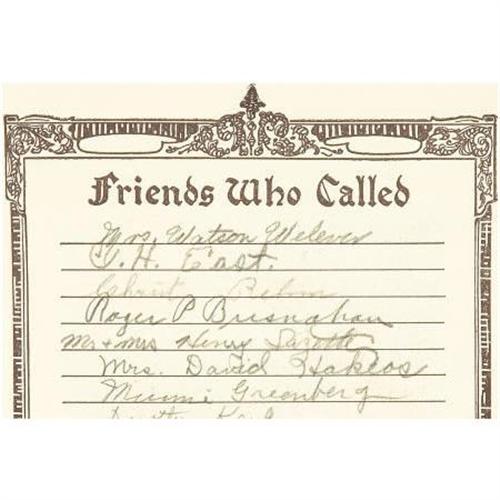 Friends Who Called
Mrs. Watson Welever
T. H. East.
Christ
Roger P Bresnahan
Mr + Mrs Henry
Mrs. David Hakeos
Minnie Greenberg